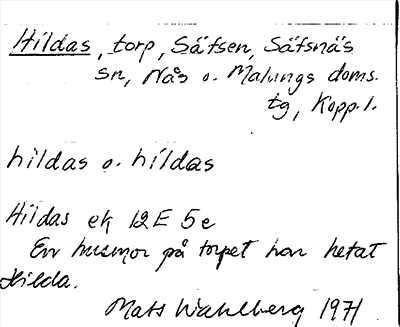 Hildas, torp, Säfsen, Säfsnäs
sn, Nås o. Malungs doms.
tg, Kopp. l.
hildas o. hildas
Hildas ek 12E 5e
En husmor på torpet har hetat
Hilda.
Mats Wahlberg 1971